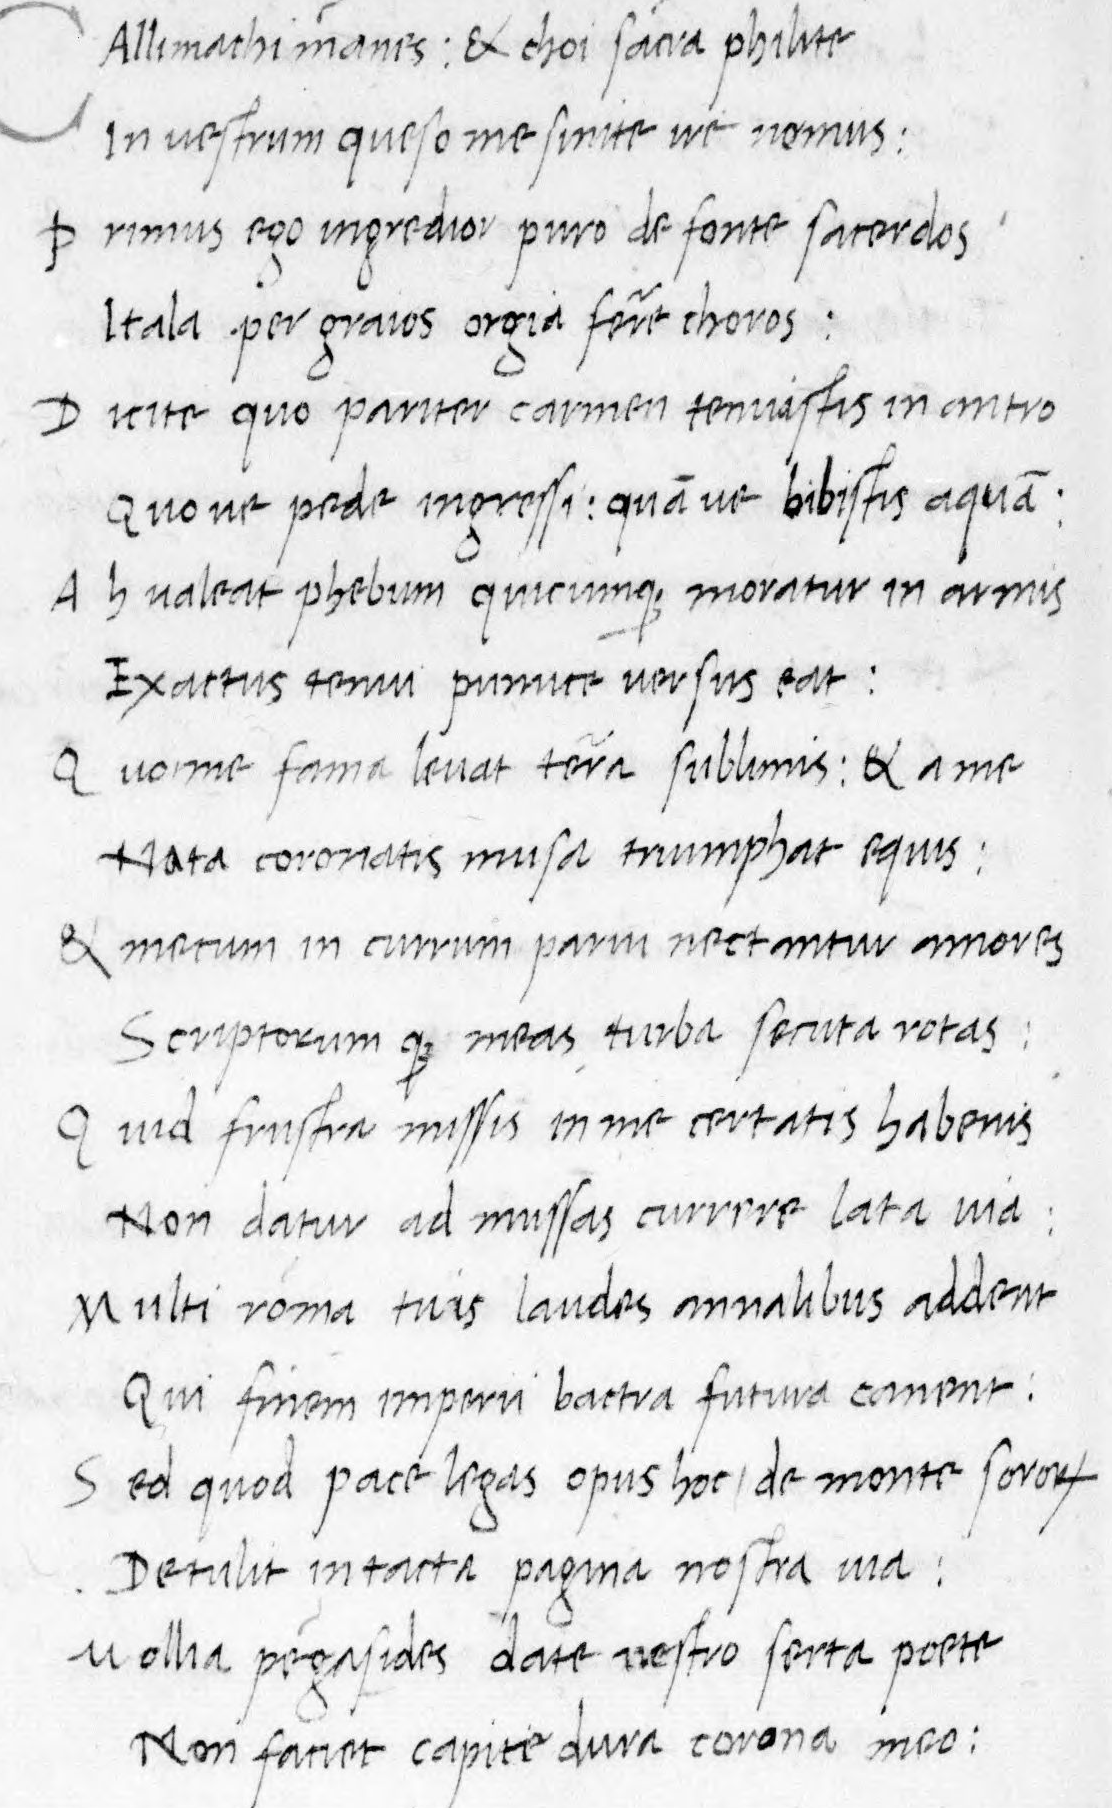 CAllimachi manes : & choi sacra philite
In vestrum queso me sinite ire nemus :
P rimus ego ingredior puro de fonte sacerdos
Itala per graios orgia ferre choros :
D icite quo pariter carmen tenuistis in antro
Quo ue pede ingressi : quā ue bibistis aquā :
A h ualeat phebum quicumq; moratur in armis
Exactus tenui pumice uersus eat :
Q uo me fama leuat terra sublimis : & a me
Nata coronatis musa triumphat equis :
& mecum in currum parui nectantur amores
Scriptorum q; meas turba secuta rotas :
Q uid frustra missis in me certatis habenis
Non datur ad mussas currere lata uia :
M ulti roma tuis laudes annalibus addent
Qui finem imperii bactra futura canent :
S ed quod pace legas opus hoc / de monte sororꝝ
Detulit intacta pagina nostra uia :
M ollia pegasides date uestro serta poete
Non faciet capite dura corona meo :